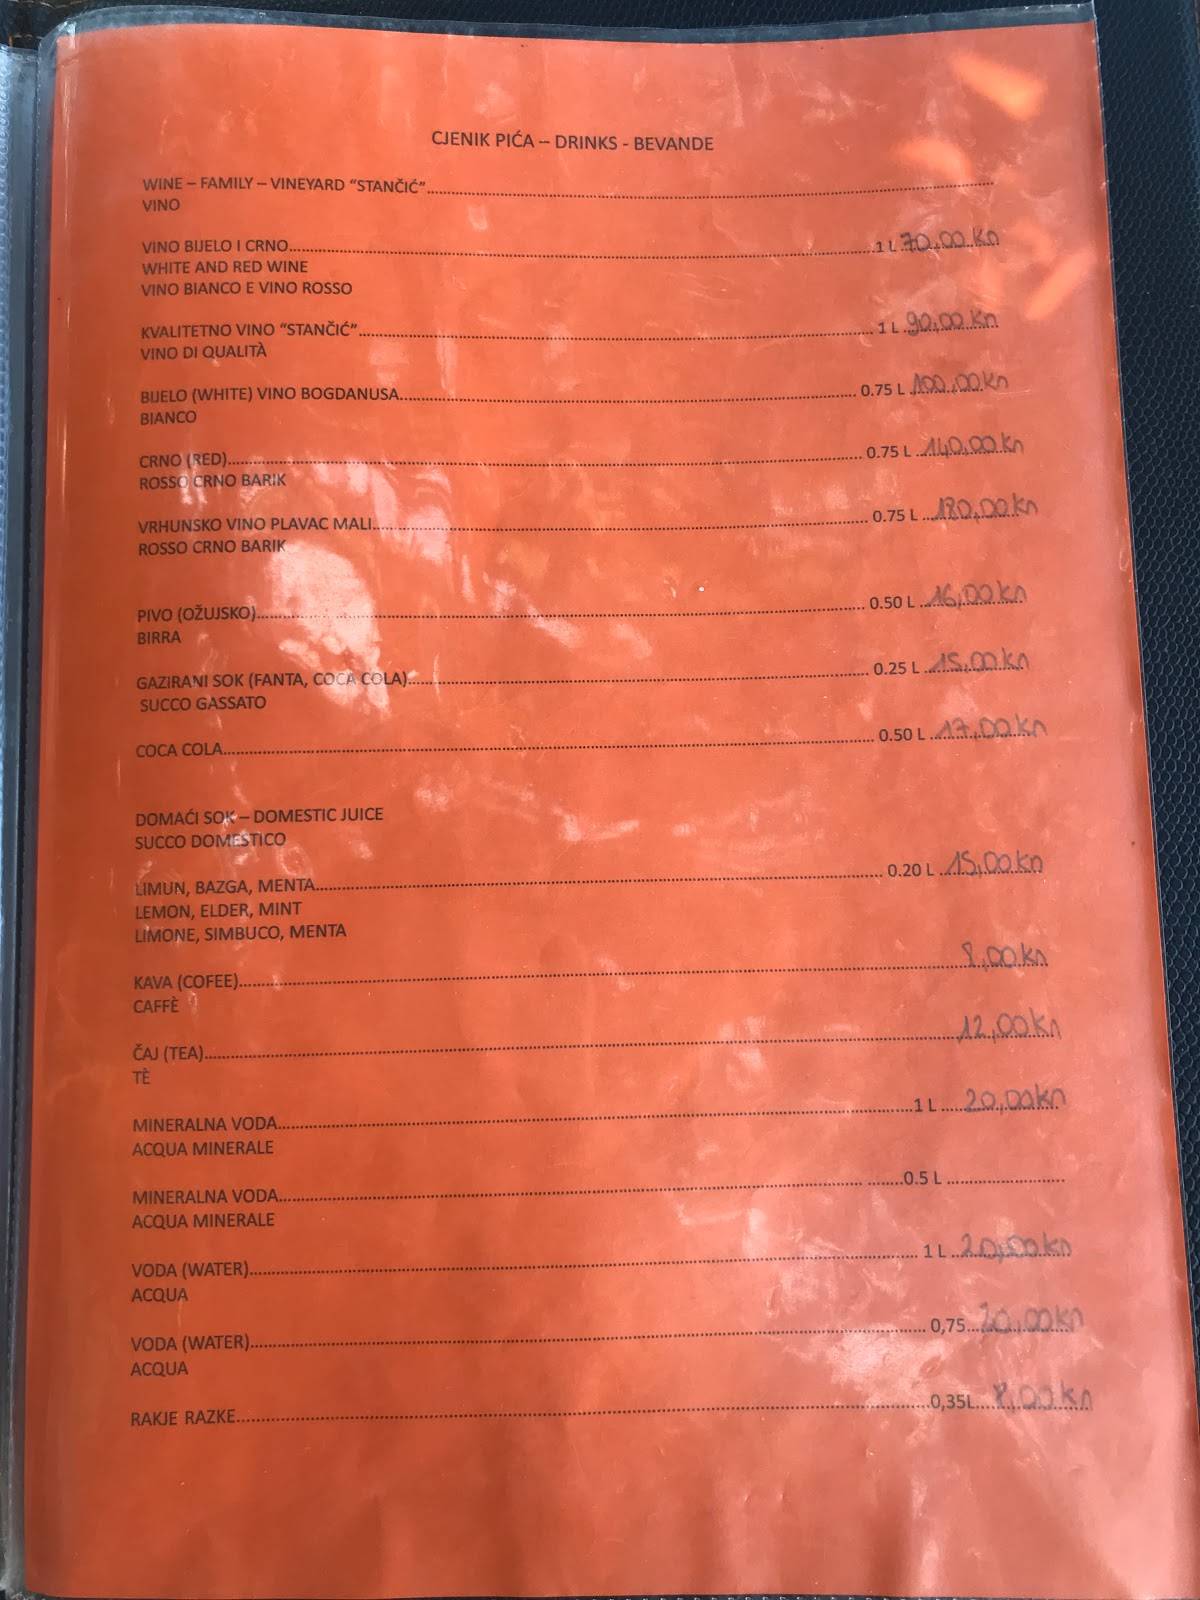 CJENIK PIĆA – DRINKS - BEVANDE
WINE – FAMILY – VINEYARD “STANČIĆ”
VINO
VINO BIJELO I CRNO 1 L 70,00 Kn
WHITE AND RED WINE
VINO BIANCO E VINO ROSSO
KVALITETNO VINO “STANČIĆ” 1 L 90,00 Kn
VINO DI QUALITÀ
BIJELO (WHITE) VINO BOGDANUSA 0.75 L 100,00 Kn
BIANCO
CRNO (RED) 0.75 L 140,00 Kn
ROSSO CRNO BARIK
VRHUNSKO VINO PLAVAC MALI 0.75 L 180,00 Kn
ROSSO CRNO BARIK
PIVO (OŽUJSKO) 0.50 L 16,00 Kn
BIRRA
GAZIRANI SOK (FANTA, COCA COLA) 0.25 L 15,00 Kn
SUCCO GASSATO
COCA COLA 0.50 L 17,00 Kn
DOMAĆI SOK – DOMESTIC JUICE
SUCCO DOMESTICO
LIMUN, BAZGA, MENTA 0.20 L 15,00 Kn
LEMON, ELDER, MINT
LIMONE, SIMBUCO, MENTA
KAVA (COFEE) 8,00 Kn
CAFFÈ
ČAJ (TEA) 12,00 Kn
TÈ
MINERALNA VODA 1 L 20,00 Kn
ACQUA MINERALE
MINERALNA VODA 0.5 L
ACQUA MINERALE
VODA (WATER) 1 L 20,00 Kn
ACQUA
VODA (WATER) 0,75 20,00 Kn
ACQUA
RAKJE RAZKE 0,35L 8,00 Kn